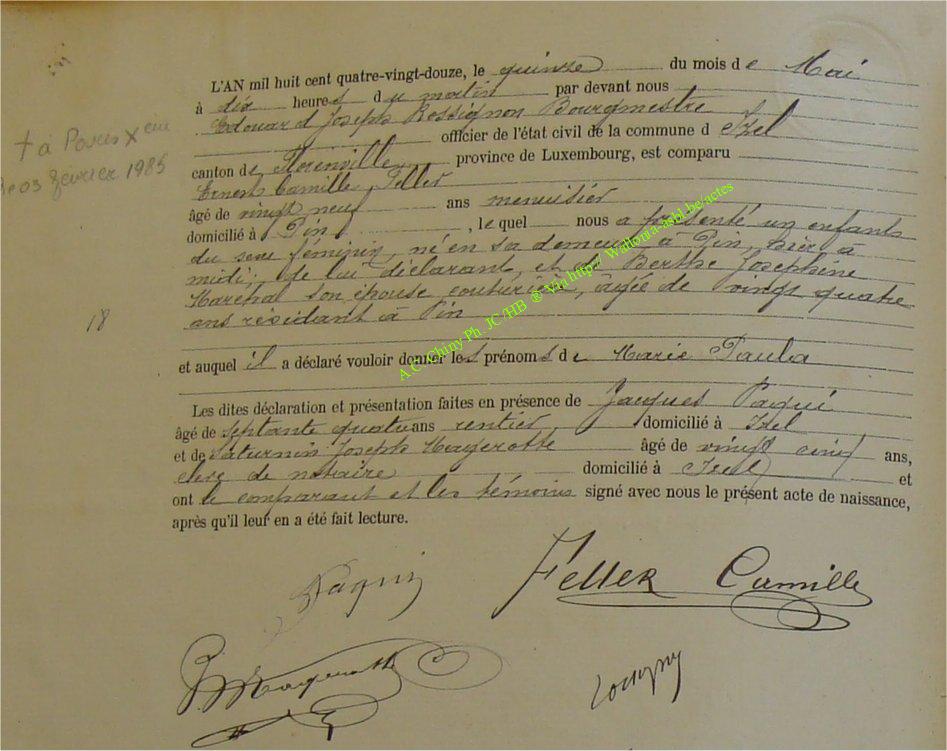 L'AN mil huit cent quatre-vingt-douze, le quinze du mois de Mai
à dix heures du matin par devant nous
Edouard Joseph Rossignon Bourgmestre
officier de l'état civil de la commune d Izel
canton de Florenville province de Luxembourg, est comparu
Ernest Camille Feller
âgé de vingt neuf ans menuisier
domicilié à Pin, lequel nous a présenté un enfants
du sexe féminin, né en sa demeure à Pin, hier à
midi, de lui déclarant, et de Berthe Josephine
Marchal son épouse couturière, âgée de vingt quatre
ans résidant à Pin
18
et auquel il a déclaré vouloir donner les prénoms de Marie Paula
Les dites déclaration et présentation faites en présence de Jacques Paqui
âgé de septante quatre ans rentier domicilié à Izel
et de Saturnin Joseph Hagerotte âgé de vingt cinq ans,
clerc de notaire domicilié à Izel et
ont le comparant et les témoins signé avec nous le présent acte de naissance,
après qu'il leur en a été fait lecture.
† à Paris Xeim
le 03 fevrier 1985
Paqui
Feller Camille
A.C. Chiny Ph. JC/HB ® Via http:// Wallonia-asbl.be/actes